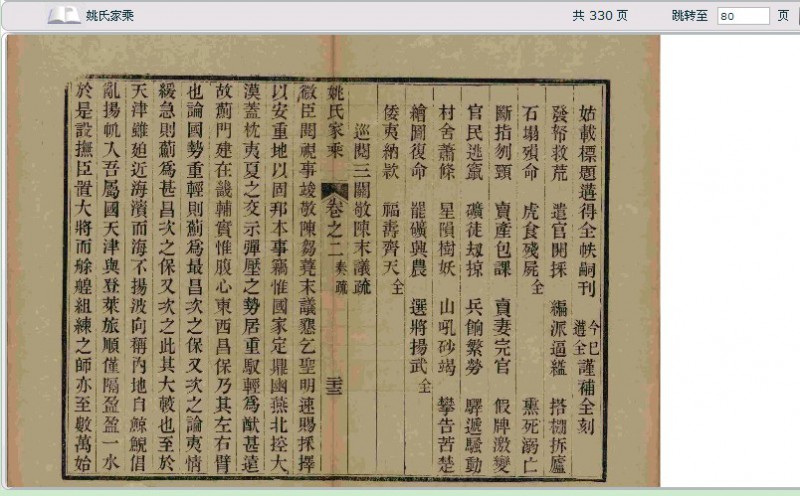 姚氏家乘
共 330 页
跳转至 80 页
姑載標題遘得全帙嗣刊 今已遘全謹補全刻
發帑救荒 遣官開採 編派逼縊 搭棚拆廬
石塌殞命 虎食殘屍全 熏死溺亡
斷指刎頸 賣產包課 賣妻完官 假牌激變
官民逃竄 礦徒刼掠 兵餉繁勞 驛遞騷動
村舍蕭條 星隕樹妖 山吼砂竭 攀告苦楚
繪圖復命 罷礦與農 選將揚武全
倭夷納款 福壽齊天全
巡閱三關敬陳末議疏
姚氏家乘 卷之二 奏疏 三十三
微臣閱視事竣敬陳芻蕘末議懇乞聖明速賜採擇
以安重地以固邦本事竊惟國家定鼎幽燕北控大
漠蓋枕夷夏之交示彈壓之勢居重馭輕爲猷甚遠
故薊門建在畿輔實惟腹心東西昌保乃其左右臂
也論國勢重輕則薊爲最昌次之保又次之論夷情
緩急則薊爲甚昌次之保又次之此其大較也至於
天津雖廹近海濱而海不揚波向稱內地自鯨鯢倡
亂揚帆入吾屬國天津與登萊旅順僅隔盈盈一水
於是設撫臣置大將而艅艎組練之師亦至數萬始